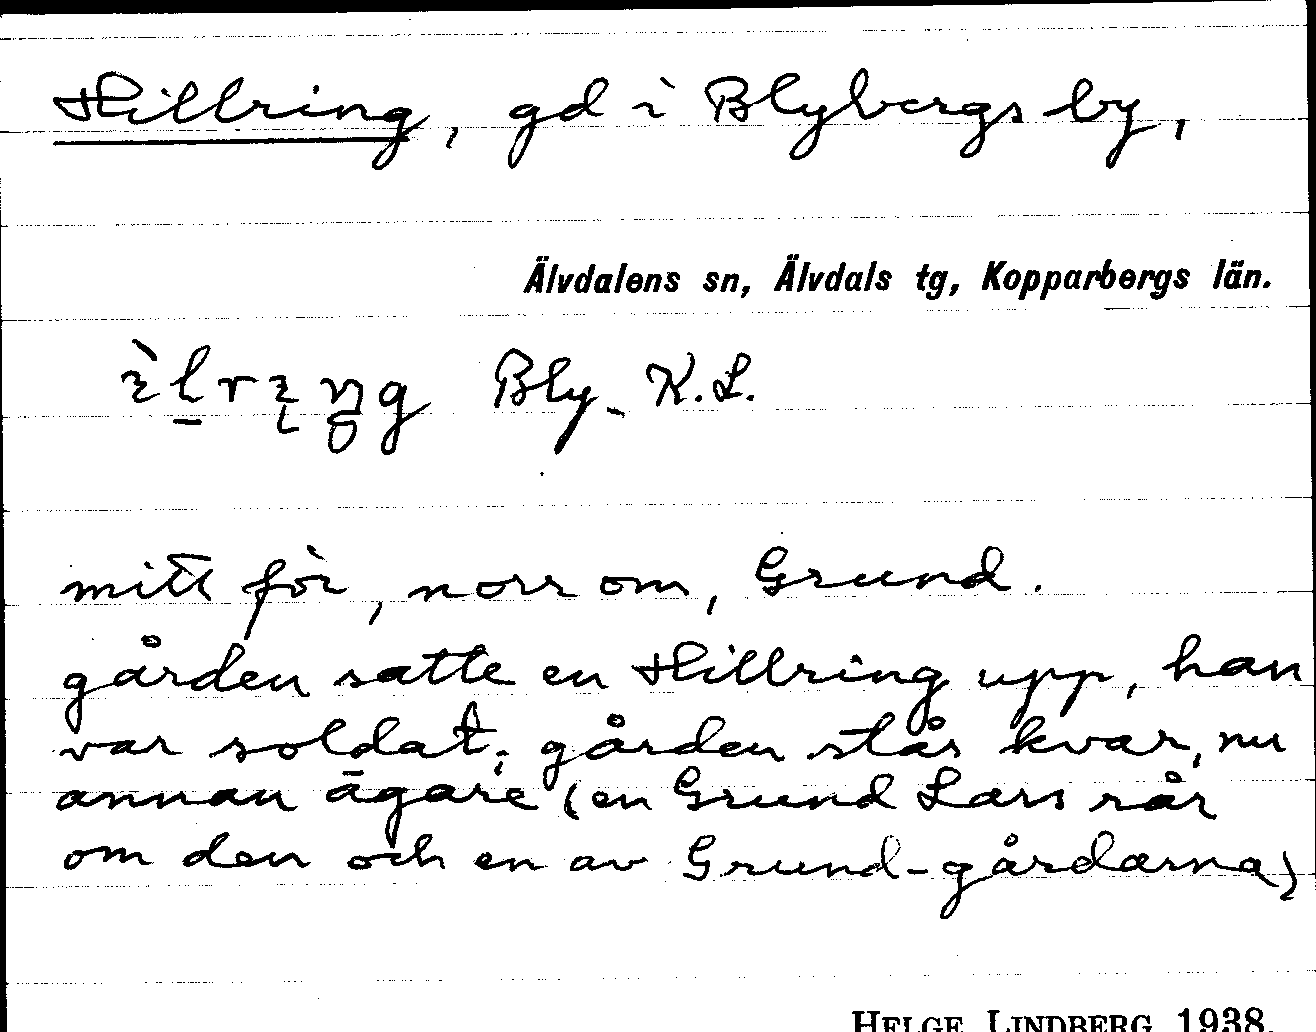 Hillring, gd i Blybergs by,
Älvdalens sn, Älvdals tg, Kopparbergs län.
Bly. K.L.
mitt för, norr om, Grund.
gården satte en Hillring upp, han
var soldat; gården står kvar, nu
annan ägare (en Grund Lars rår
om den och en av Grund-gårdarna)
HELGE LINDBERG 1938.